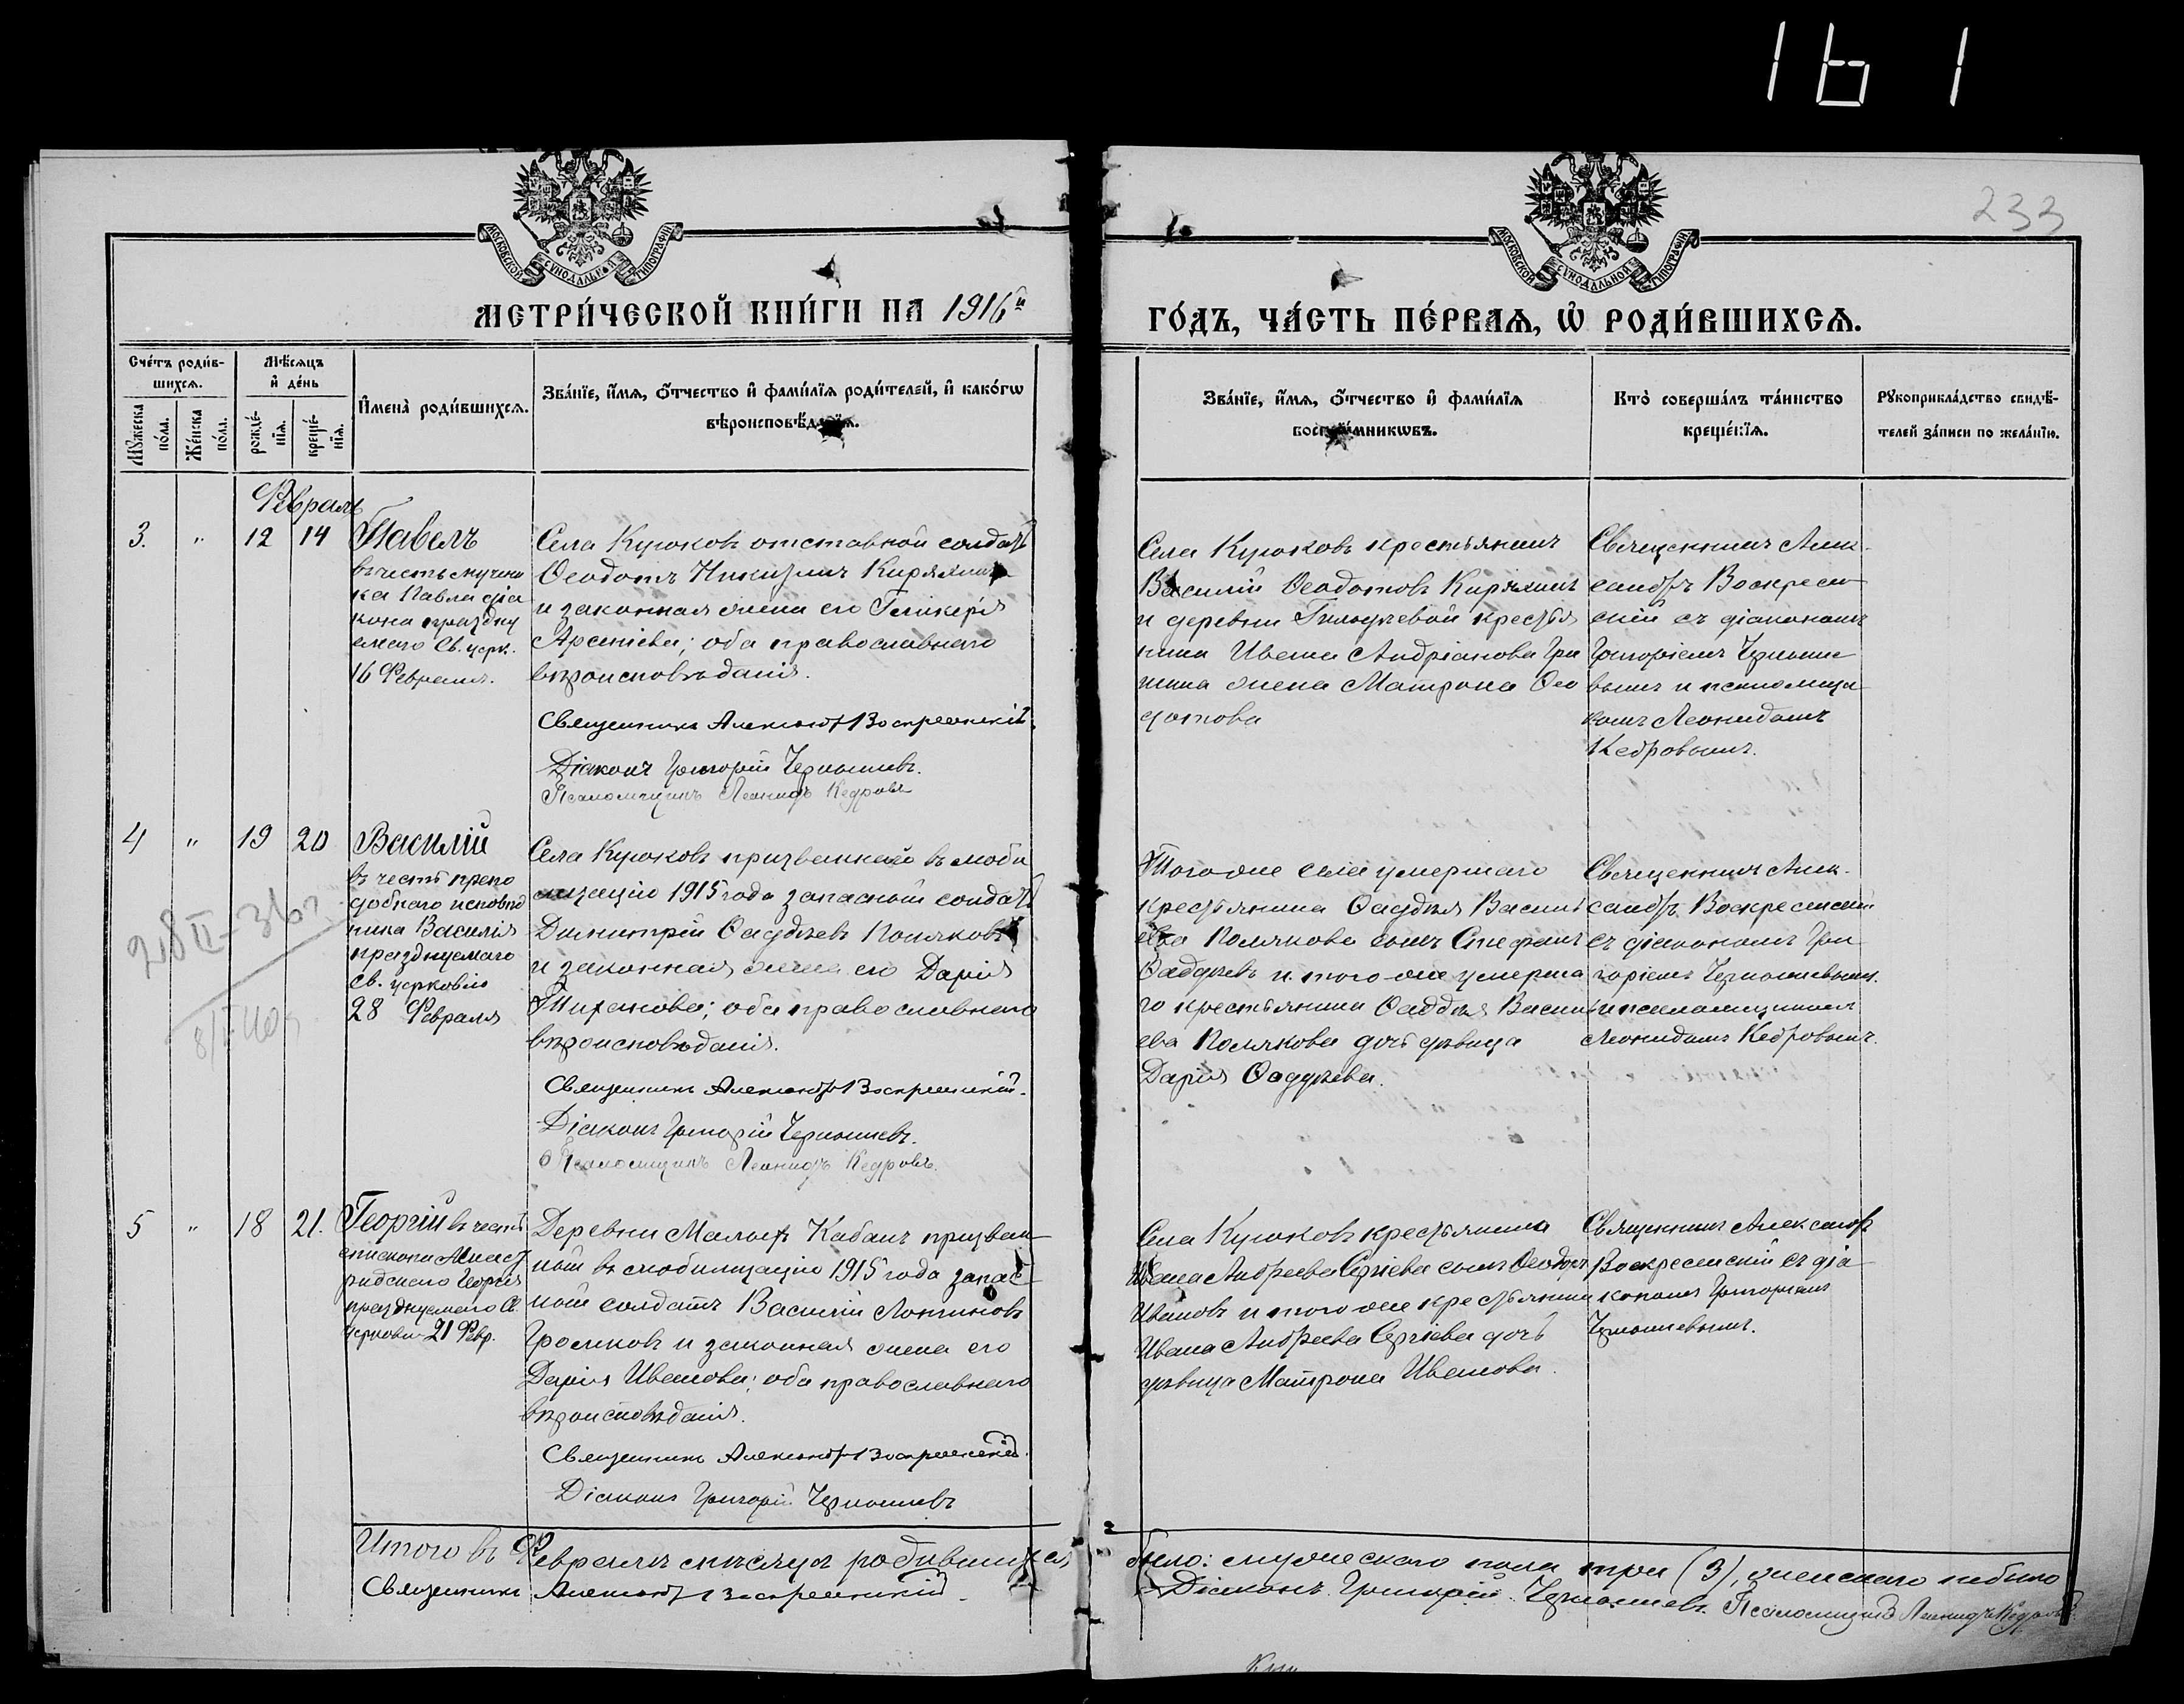 161
233
МОСКОВСКОЙ СѴНОДАЛЬНОЙ ТИПОГРАФІИ
МОСКОВСКОЙ СѴНОДАЛЬНОЙ ТИПОГРАФІИ
МЕТРИ́ЧЕСКОЙ КНИ́ГИ НА 1916й
ГО́ДЪ, ЧА́СТЬ ПЕ́РВАѦ, Ѡ РОДИ́ВШИХСѦ.
Сче́тъ роди́в-
шихсѧ.
Мꙋ́жеска по́ла.
Же́нска по́ла.
Мѣ́сѧцъ
и҆ де́нь
рожде́-
нїѧ.
креще́-
нїѧ.
И҆мена̀ роди́вшихсѧ.
Зва́нїе, и҆́мѧ, ѻ҆́тчество и҆ фами́лїѧ роди́телей, и҆ како́гѡ
вѣроисповѣ́данїѧ.
Зва́нїе, и҆́мѧ, ѻ҆́тчество и҆ фами́лїѧ
воспрїе́мникѡвъ.
Кто̀ соверша́лъ та́инство
креще́нїѧ.
Рꙋкоприкла́дство свидѣ́-
телей за́писи по жела́нїю.
Февраль
3. " 12 14 Павелъ
въ честь мучени
ка Павла діа
кона праздну
емаго Св. церк.
16 Февраля.
Села Куюковъ отставной солдатъ
Ѳеодотъ Никитинъ Кирялинъ
и законная жена его Гликерія
Арсеніева; оба православнаго
вѣроисповѣданія.
Священникъ Александръ Воскресенскій.
Діаконъ Григорій Чернышевъ.
Псаломщикъ Леонидъ Кедровъ
Села Куюковъ крестьянинъ
Василій Ѳеодотовъ Кирялинъ
и деревни крестья
нина Ивана Андріанова Гри
шина жена Матрона Ѳео
дотова
Священникъ Алек-
сандръ Воскресен
скій съ діакономъ
Григоріемъ Черныше
вымъ и псаломщи
комъ Леонидомъ
Кедровымъ.
4 " 19 20 Василій
въ честь препо
добнаго исповѣд
ника Василія
празднуемаго
св. церковію
28 Февраля
Села Куюковъ призваннаго въ моби
лизацію 1915 года запасный солдатъ
Димитрій Ѳаддѣевъ Поляковъ
и законная жена его Дарія
Тиханова; оба православнаго
вѣроисповѣданія.
Священникъ Александръ Воскресенскій.
Діаконъ Григорій Чернышевъ.
Псаломщикъ Леонидъ Кедровъ.
Того же села умершаго
крестьянина Ѳаддѣя Василь
ева Полякова сынъ Стефанъ
Ѳаддѣевъ и того-же умерша
го крестьянина Ѳаддѣя Василь
ева Полякова дочь дѣвица
Дарія Ѳаддѣева.
Священникъ Алек-
сандръ Воскресенскій
съ діакономъ Гри
горіемъ Чернышевымъ
и псаломщикомъ
Леонидомъ Кедровымъ.
5 " 18 21. Георгій въ честь
епископа Амаст
ридскаго Георгія
празднуемаго Св.
церковію 21 Февр.
Деревни Малыхъ Кабанъ призван
ный въ мобилизацію 1915 года запас
ный солдатъ Василій Лонгиновъ
Громковъ и законная жена его
Дарія Иванова; оба православнаго
вѣроисповѣданія.
Священникъ Александръ Воскресенскій.
Діаконъ Григорій Чернышевъ
Села Куюковъ крестьянина
Ивана Андреева Сергіева сынъ Ѳеодоръ
Ивановъ и того же крестьянина
Ивана Андреева Сергіева дочь
дѣвица Матрона Иванова.
Священникъ Александръ
Воскресенскій съ діа
кономъ Григоріемъ
Чернышевымъ.
Итого въ Февралѣ мѣсяцѣ родившихся
было: мужескаго пола три (3), женскаго небыло
Священникъ Александръ Воскресенскій.
Діаконъ Григорій Чернышевъ. Псаломщикъ Леонидъ Кедровъ.